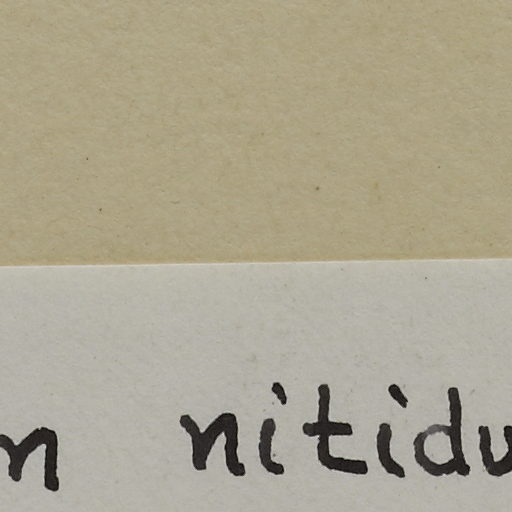 m nitidu